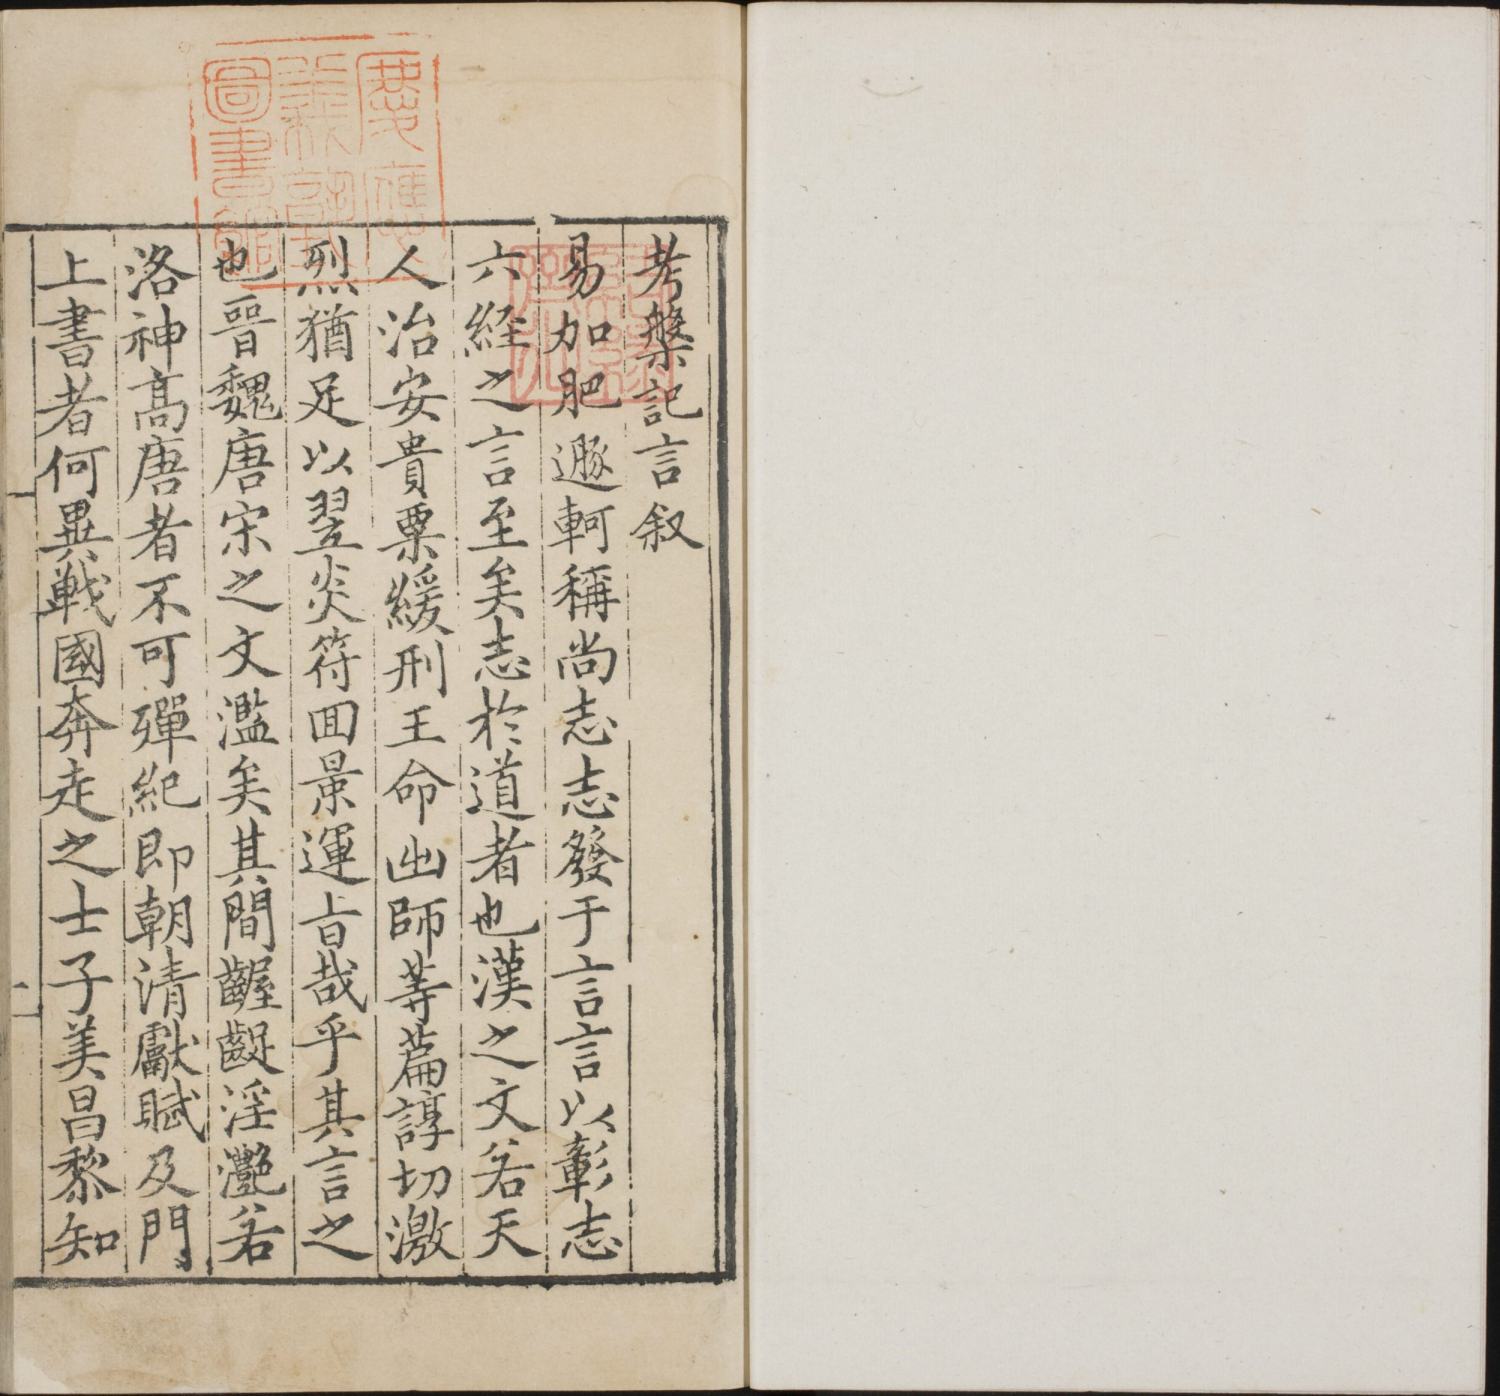 考槃記言叙
易加肥遯軻稱尚志志發于言言以彰志
六経之言至矣志於道者也漢之文若天
人治安貴粟緩刑王命出師等篇諄切激
烈猶足以翌炎符囬景運旨哉乎其言之
也晉魏唐宋之文濫矣其間齷齪淫灧若
洛神髙唐者不可殫紀即朝清獻賦及門
上書者何異戰國奔走之士子美昌黎知
慶應
義塾
圖書館